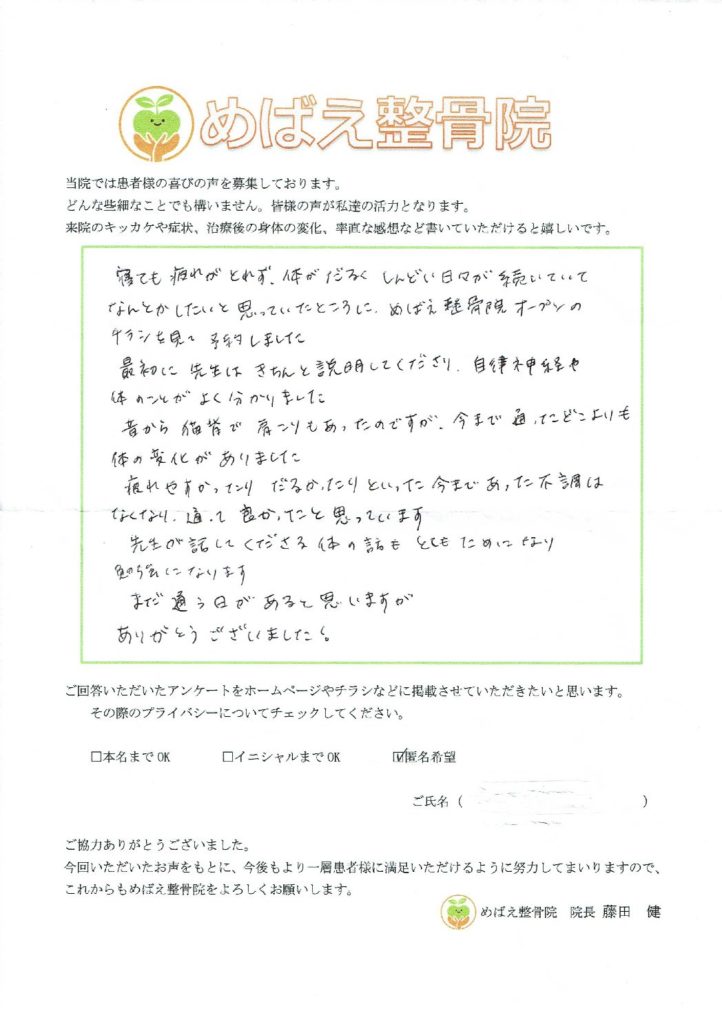 めばえ整骨院
当院では患者様の喜びの声を募集しております。
どんな些細なことでも構いません。皆様の声が私達の活力となります。
来院のキッカケや症状、治療後の身体の変化、率直な感想など書いていただけると嬉しいです。
寝ても疲れがとれず、体がだるく しんどい日々が続いていて
なんとかしたいと思っていたところに、めばえ整骨院オープンの
チラシを見て 予約しました
最初に 先生は きちんと説明してくださり、自律神経や
体のことが よく分かりました
昔から 猫背で 肩こりもあったのですが、今まで通ったどこよりも
体の変化がありました
疲れやすかったり だるかったりといった今まであった不調は
なくなり、通って良かったと思っています
先生が話してくださる体の話も とてもためになり
勉強になります
まだ通う日があると思いますが
ありがとうございました。
ご回答いただいたアンケートをホームページやチラシなどに掲載させていただきたいと思います。
その際のプライバシーについてチェックしてください。
□本名まで OK □イニシャルまで OK ☑匿名希望
ご氏名（ ）
ご協力ありがとうございました。
今回いただいたお声をもとに、今後もより一層患者様に満足いただけるように努力してまいりますので、
これからもめばえ整骨院をよろしくお願いします。
めばえ整骨院 院長 藤田 健